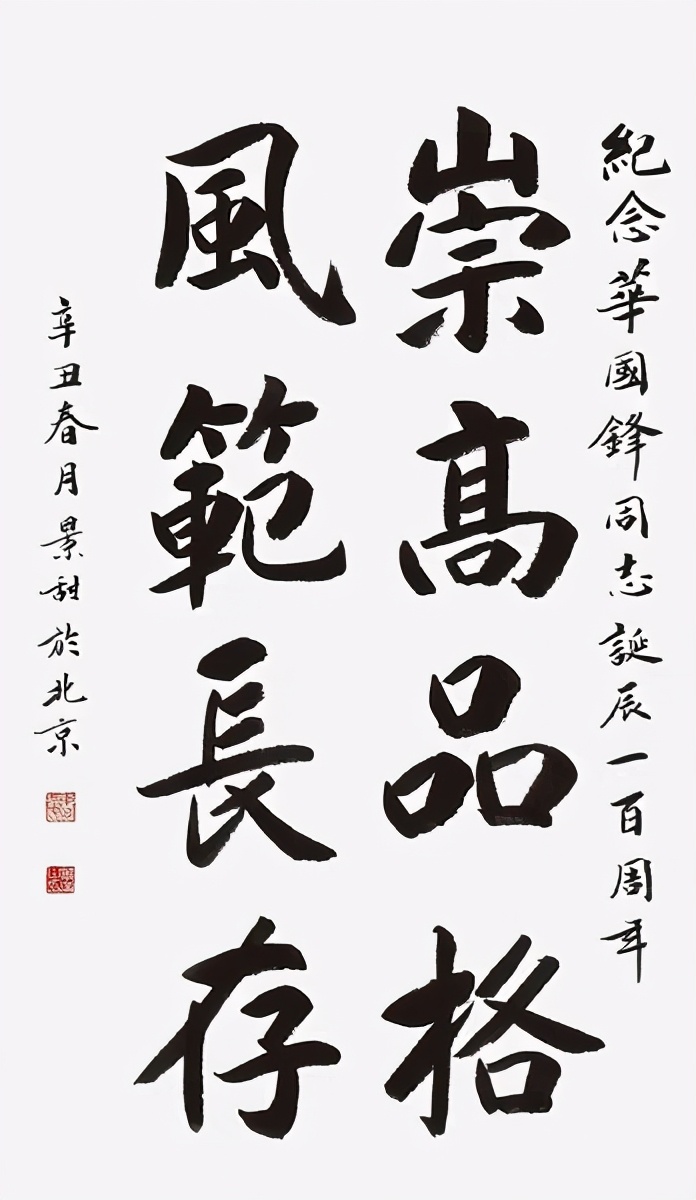 紀念華國鋒同志誕辰一百周年
崇高品格
風範長存
辛丑春月景甜於北京